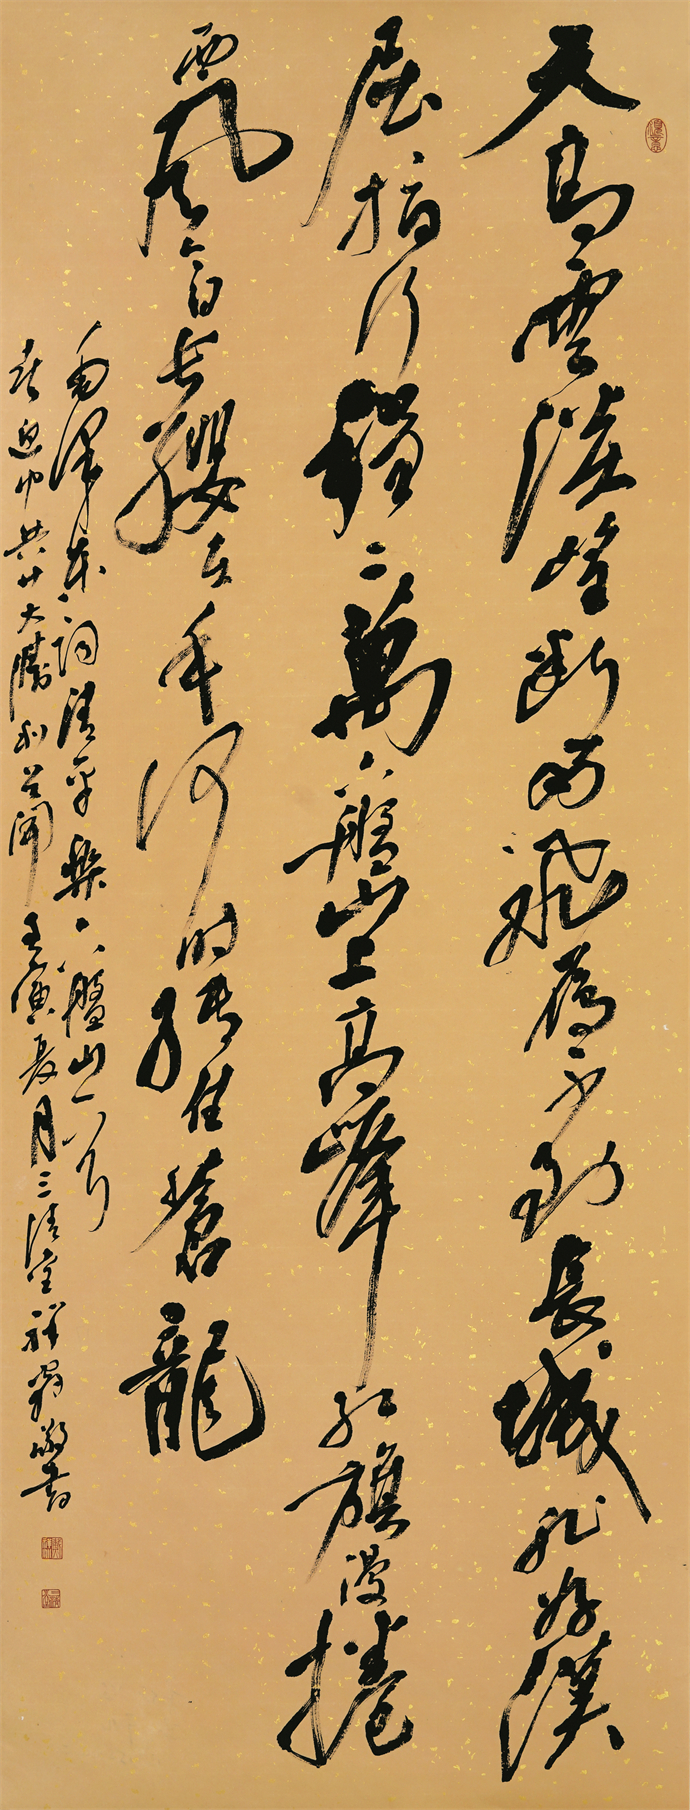 天高雲淡望斷南飛雁不到長城非好漢
屈指行程二萬六盤山上高峰紅旗漫捲
西風今日長纓在手何時縛住蒼龍
毛澤東詞清平樂六盤山一首
喜迎中共廿大勝利召開壬寅夏月三清堂祥敬書